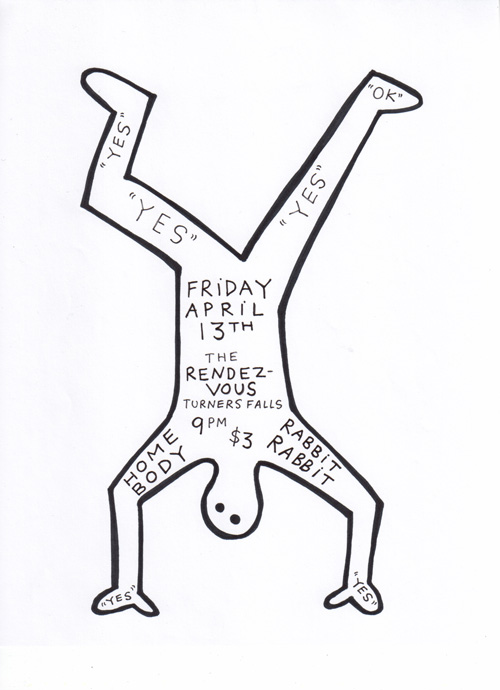 "OK"
"YES"
"YES"
"YES"
FRiDAY
APRiL
13TH
THE
RENDEZ-
VOUS
TURNERS FALLS
9PM
$3
HOME
BODY
RABBiT
RABBiT
"YES"
"YES"